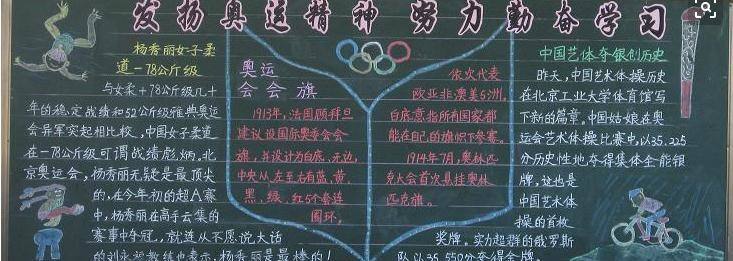 发扬奥运精神 努力勤奋学习
杨秀丽女子柔
道-78公斤级
与女柔+78公斤级几十
年的稳定战绩和52公斤级雅典奥运
会异军突起相比较,中国女子柔道
在-78公斤级可谓战绩彪炳。北
京奥运会,杨秀丽无疑是最顶尖
的,在今年初的超A赛
中,杨秀丽在高手云集的
赛事中夺冠。就连从不愿说大话
的刘永福教练也表示,杨秀丽是最棒的!
奥运
会会旗
1913年,法国顾拜旦
建议设国际奥委会会
旗,并设计为白底,无边,
中央从左至右有蓝、黄、
黑、绿、红5个套连
圆环,
依次代表
欧亚非澳美5洲。
白底意指所有国家都
能在自己的旗帜下参赛。
1914年7月,奥林匹
克大会首次悬挂奥林
匹克旗。
中国艺体夺银创历史
昨天,中国艺术体操历史
在北京工业大学体育馆写
下新的篇章。中国姑娘在奥
运会艺术体操比赛中,以35.225
分历史性地夺得集体全能银
牌,这也是
中国艺术体
操的首枚
奖牌。实力超群的俄罗斯
队以35.550分夺得金牌。